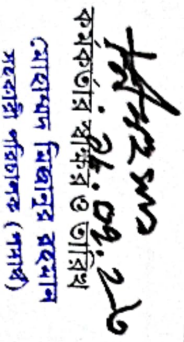 কর্মকর্তার স্বাক্ষর ও তারিখ
মোহাম্মদ মিজানুর রহমান
সহকারী পরিচালক (পদার্থ)